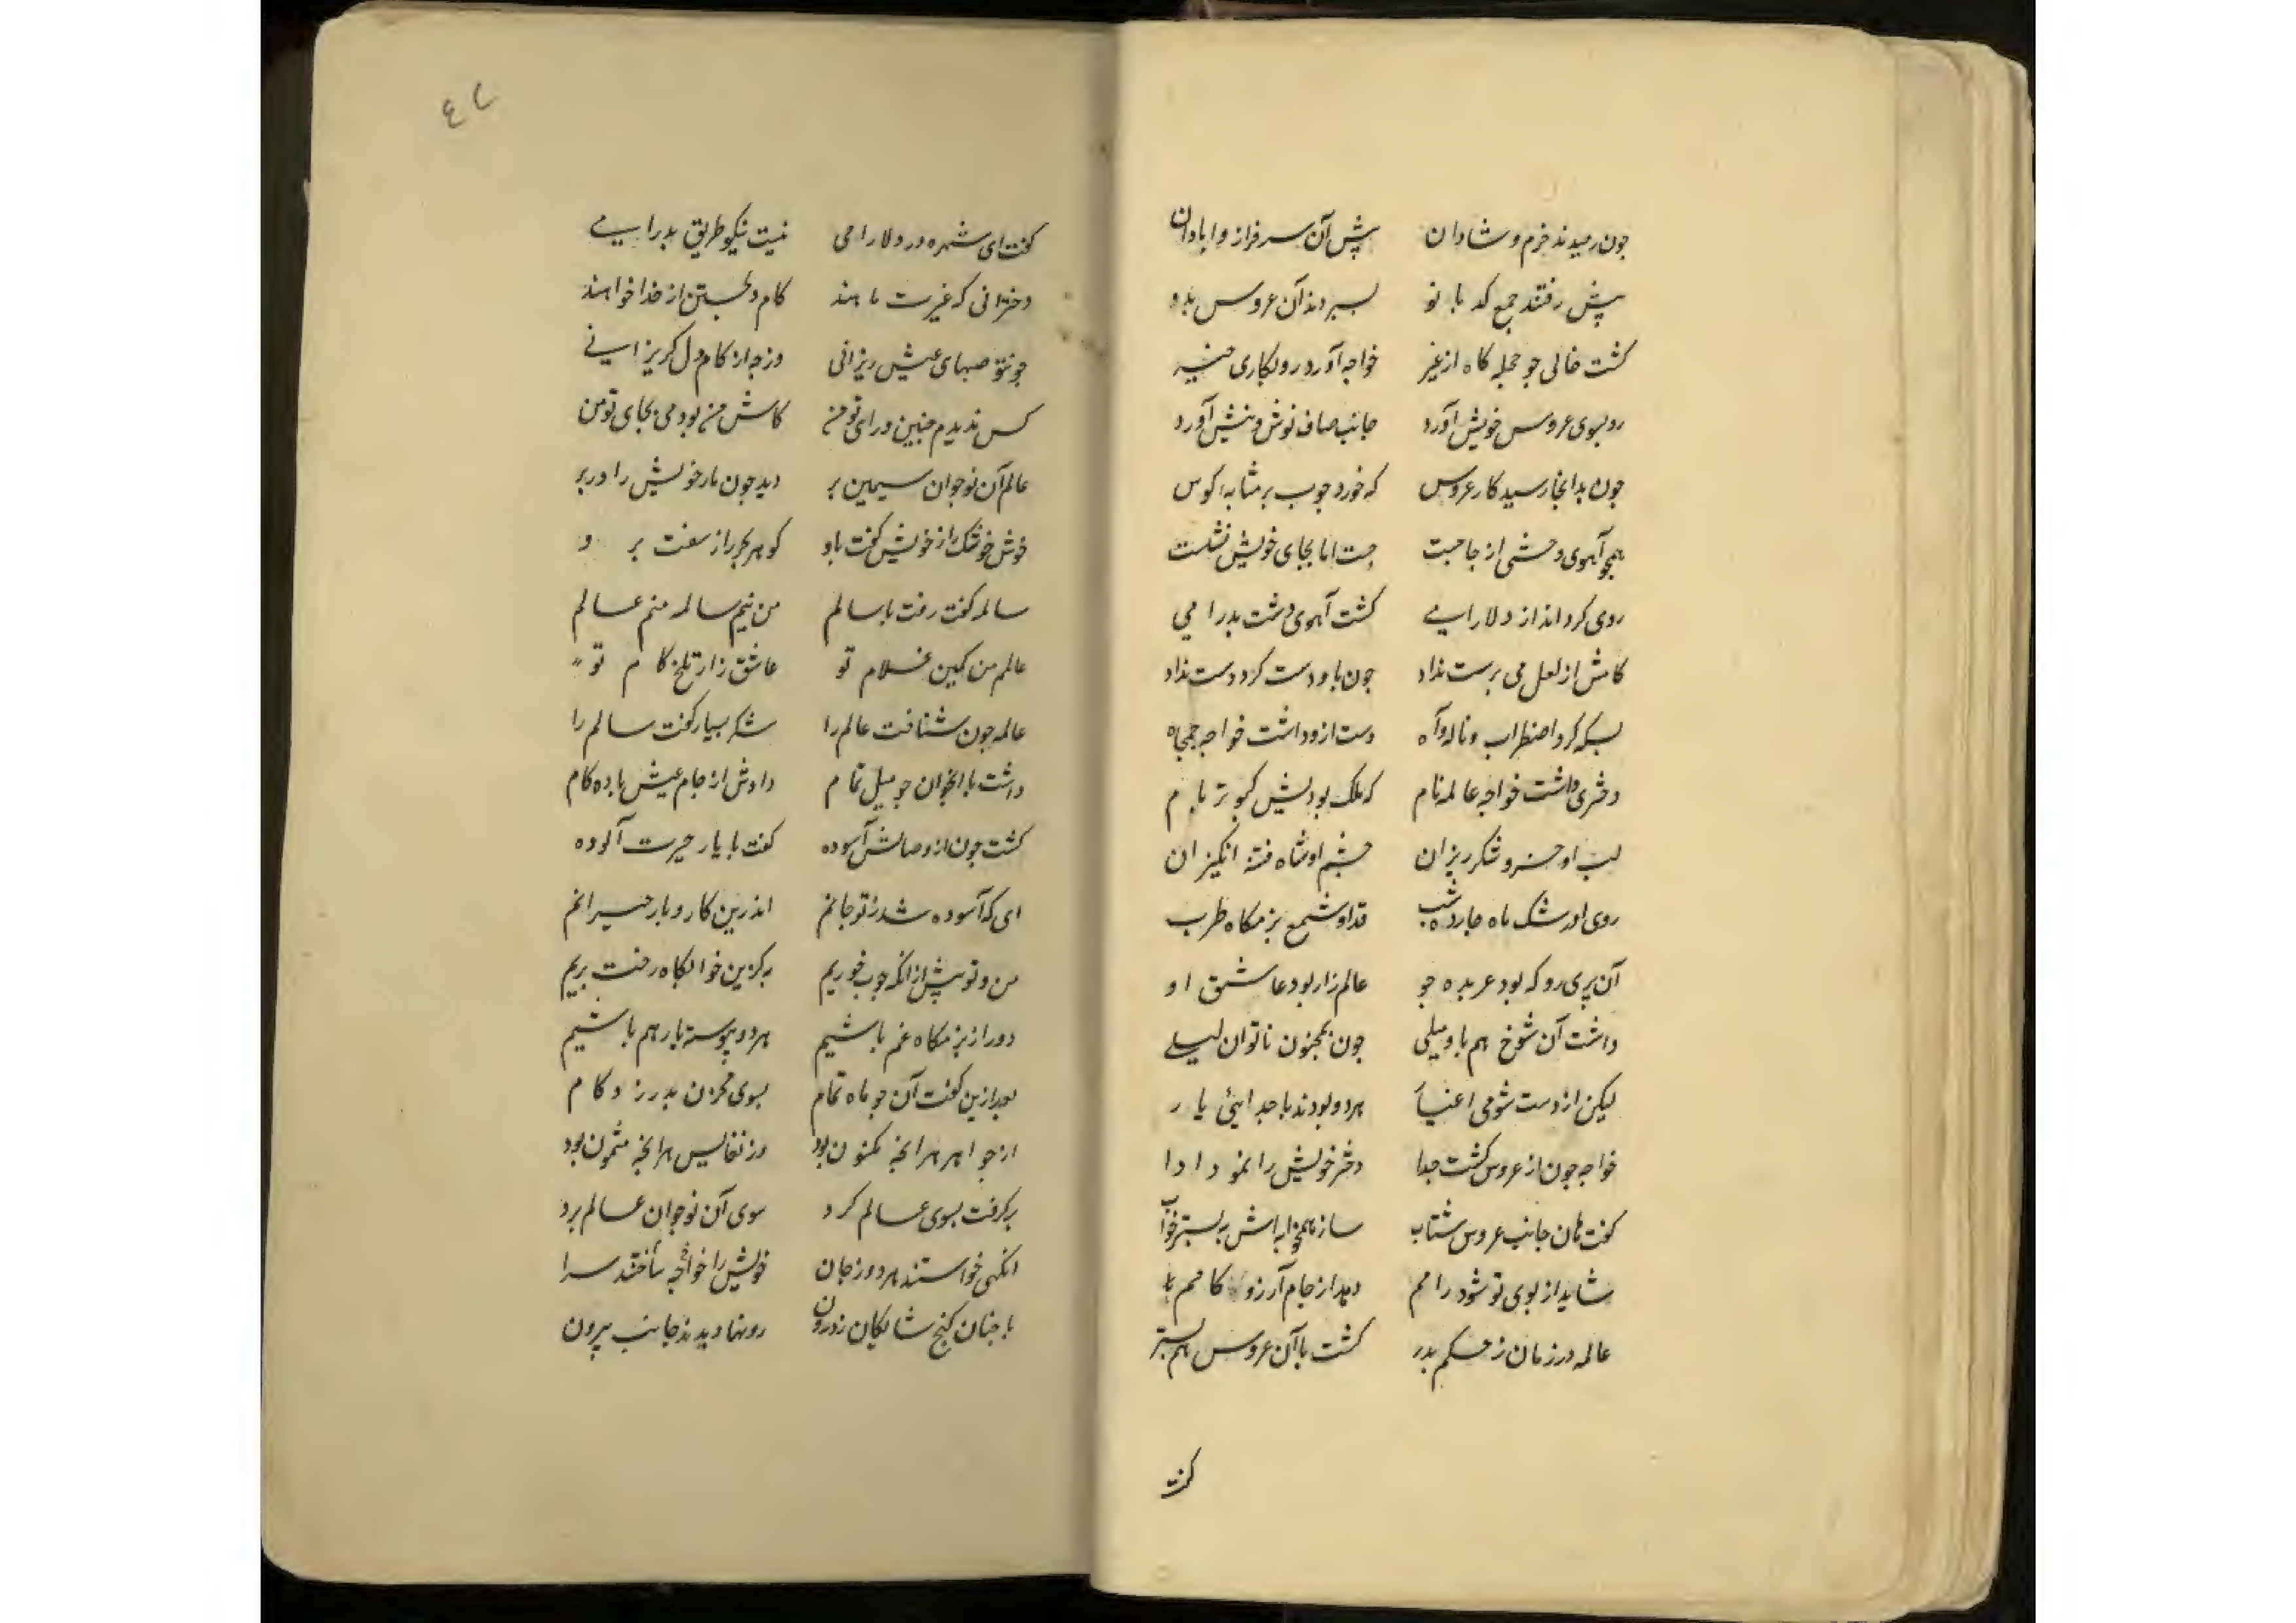 چون رسیدند خرم و شادان پیش آن سرفراز و اباذان
پیش رفتند جمع کد بانو بسپردند آن عروس بدو
کشت خالی جو حجله کاه از غیر خواجه آورد رو بکاری خیر
رو بسوی عروس خویش آورد جانب صاف نوش نیش آورد
جون بدانجا رسید کار عروس که خورد جوب بر مثابه کوس
همجو آهوی وحشی از جا جست جست اما بجای خویش نشست
روی کرداند از دلارایی کشت آهوی دشت بدرامی
کامش از لعل می برست نداد جون باو دست کرد دست نداد
بسکه کرد اضطراب و ناله و آه دست ازو داشت خواجه جمجاه
دختری داشت خواجه عالمه نام که ملک بودیش کبوتر بام
لب او خسرو شکرریزان جشم او شاه فتنه انکیزان
روی او رشک ماه جارده شب قد او شمع بزمکاه طرب
آن پری رو که بود عربده جو عالم زار بود عاشق او
داشت آن شوخ هم باو میلی جون بمجنون ناتوان لیلی
لیکن از دست شومی اغیار هر دو بودند با جدایئ یار
خواجه جون از عروس کشت جدا دختر خویش را نمود ادا
کفت هان جانب عروس شتاب ساز همخوابه اش به بستر خواب
شاید از بوی تو شود رامم دهد از جام آرزو کامم
عالمه در زمان ز حکم بدر کشت با آن عروس هم بستر
کفت
٤٨
کفت ای شهره در دلارامی نیست نیکو طریق بدرایی
دخترانی که غیرت ماهند کام دلجستن از خدا خواهند
جو تو صهبای عیش ریزانی وز جه از کام دل کریزانی
کس ندیدم جنین ورای تو من کاش من بودمی بجای تو من
عالم آن نوجوان سیمین بر دید جون مار خویش را در بر
خوش خوشک راز خویش کفت باو کوهر بحر راز سفت برو
سالمه کفت رفت با سالم من نیم سالمه منم عالم
عالم من کمین غلام تو عاشق زار تلخ کام تو
عالمه جون شناخت عالم را شکر بسیار کفت سالم را
داشت با آنجوان جو میل تمام دادش از جام عیش باده کام
کشت جون از وصالش آسوده کفت با یار حیرت آلوده
ای که آسوده شد ز تو جانم اندرین کار و بار حیرانم
من و تو پیش از آنکه جوب خوریم به کزین خوابکاه رخت بریم
دور از بزمکاه غم باشیم هر دو پیوسته یار هم باشیم
بعد ازین کفت آن جو ماه تمام بسوی مخزن بدر زد کام
از جواهر هر آنچه مکنون بود وز نفایس هر آنچه مثمون بود
برکرفت بسوی عالم کرد سوی آن نوجوان عالم برد
انکهی خواستند هر دو ز جان خویش را خواجه ساختند سرا
با جنان کنج شایکان ز درون رو نهادند جانب بیرون